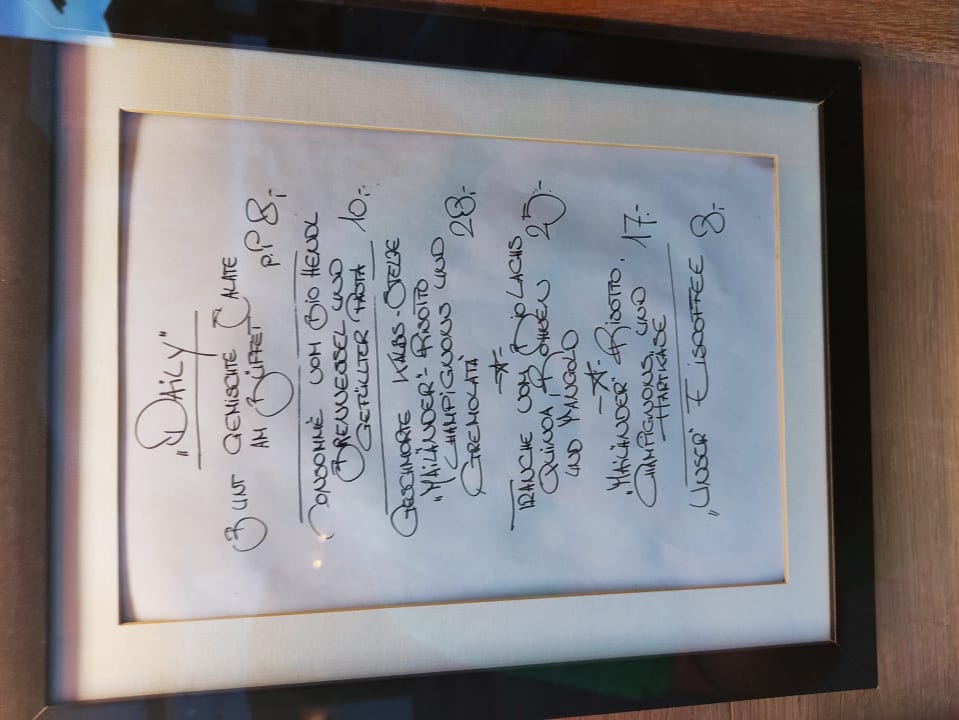 „DAILY"
BUNT GEMISCHTE SALATE
AM BÜFFET pP 8,-
CONSOMMÉ VOM BIO HENDL
BRENNESSEL UND
GEFÜLLTER PASTA 10.-
GESCHMORTE KALBS-STELZE
„MAILÄNDER"-RISOTTO
CHAMPIGNONS UND 28.-
GREMOLATA
TRANCHE VOM BIOLACHS
QUINOA, BOHNEN 25,-
UND MANGOLD
„MAILÄNDER"-RISOTTO,
CHAMPIGNONS, UND 17.-
HARTKÄSE
„UNSER" EISCOFFEE 8,-